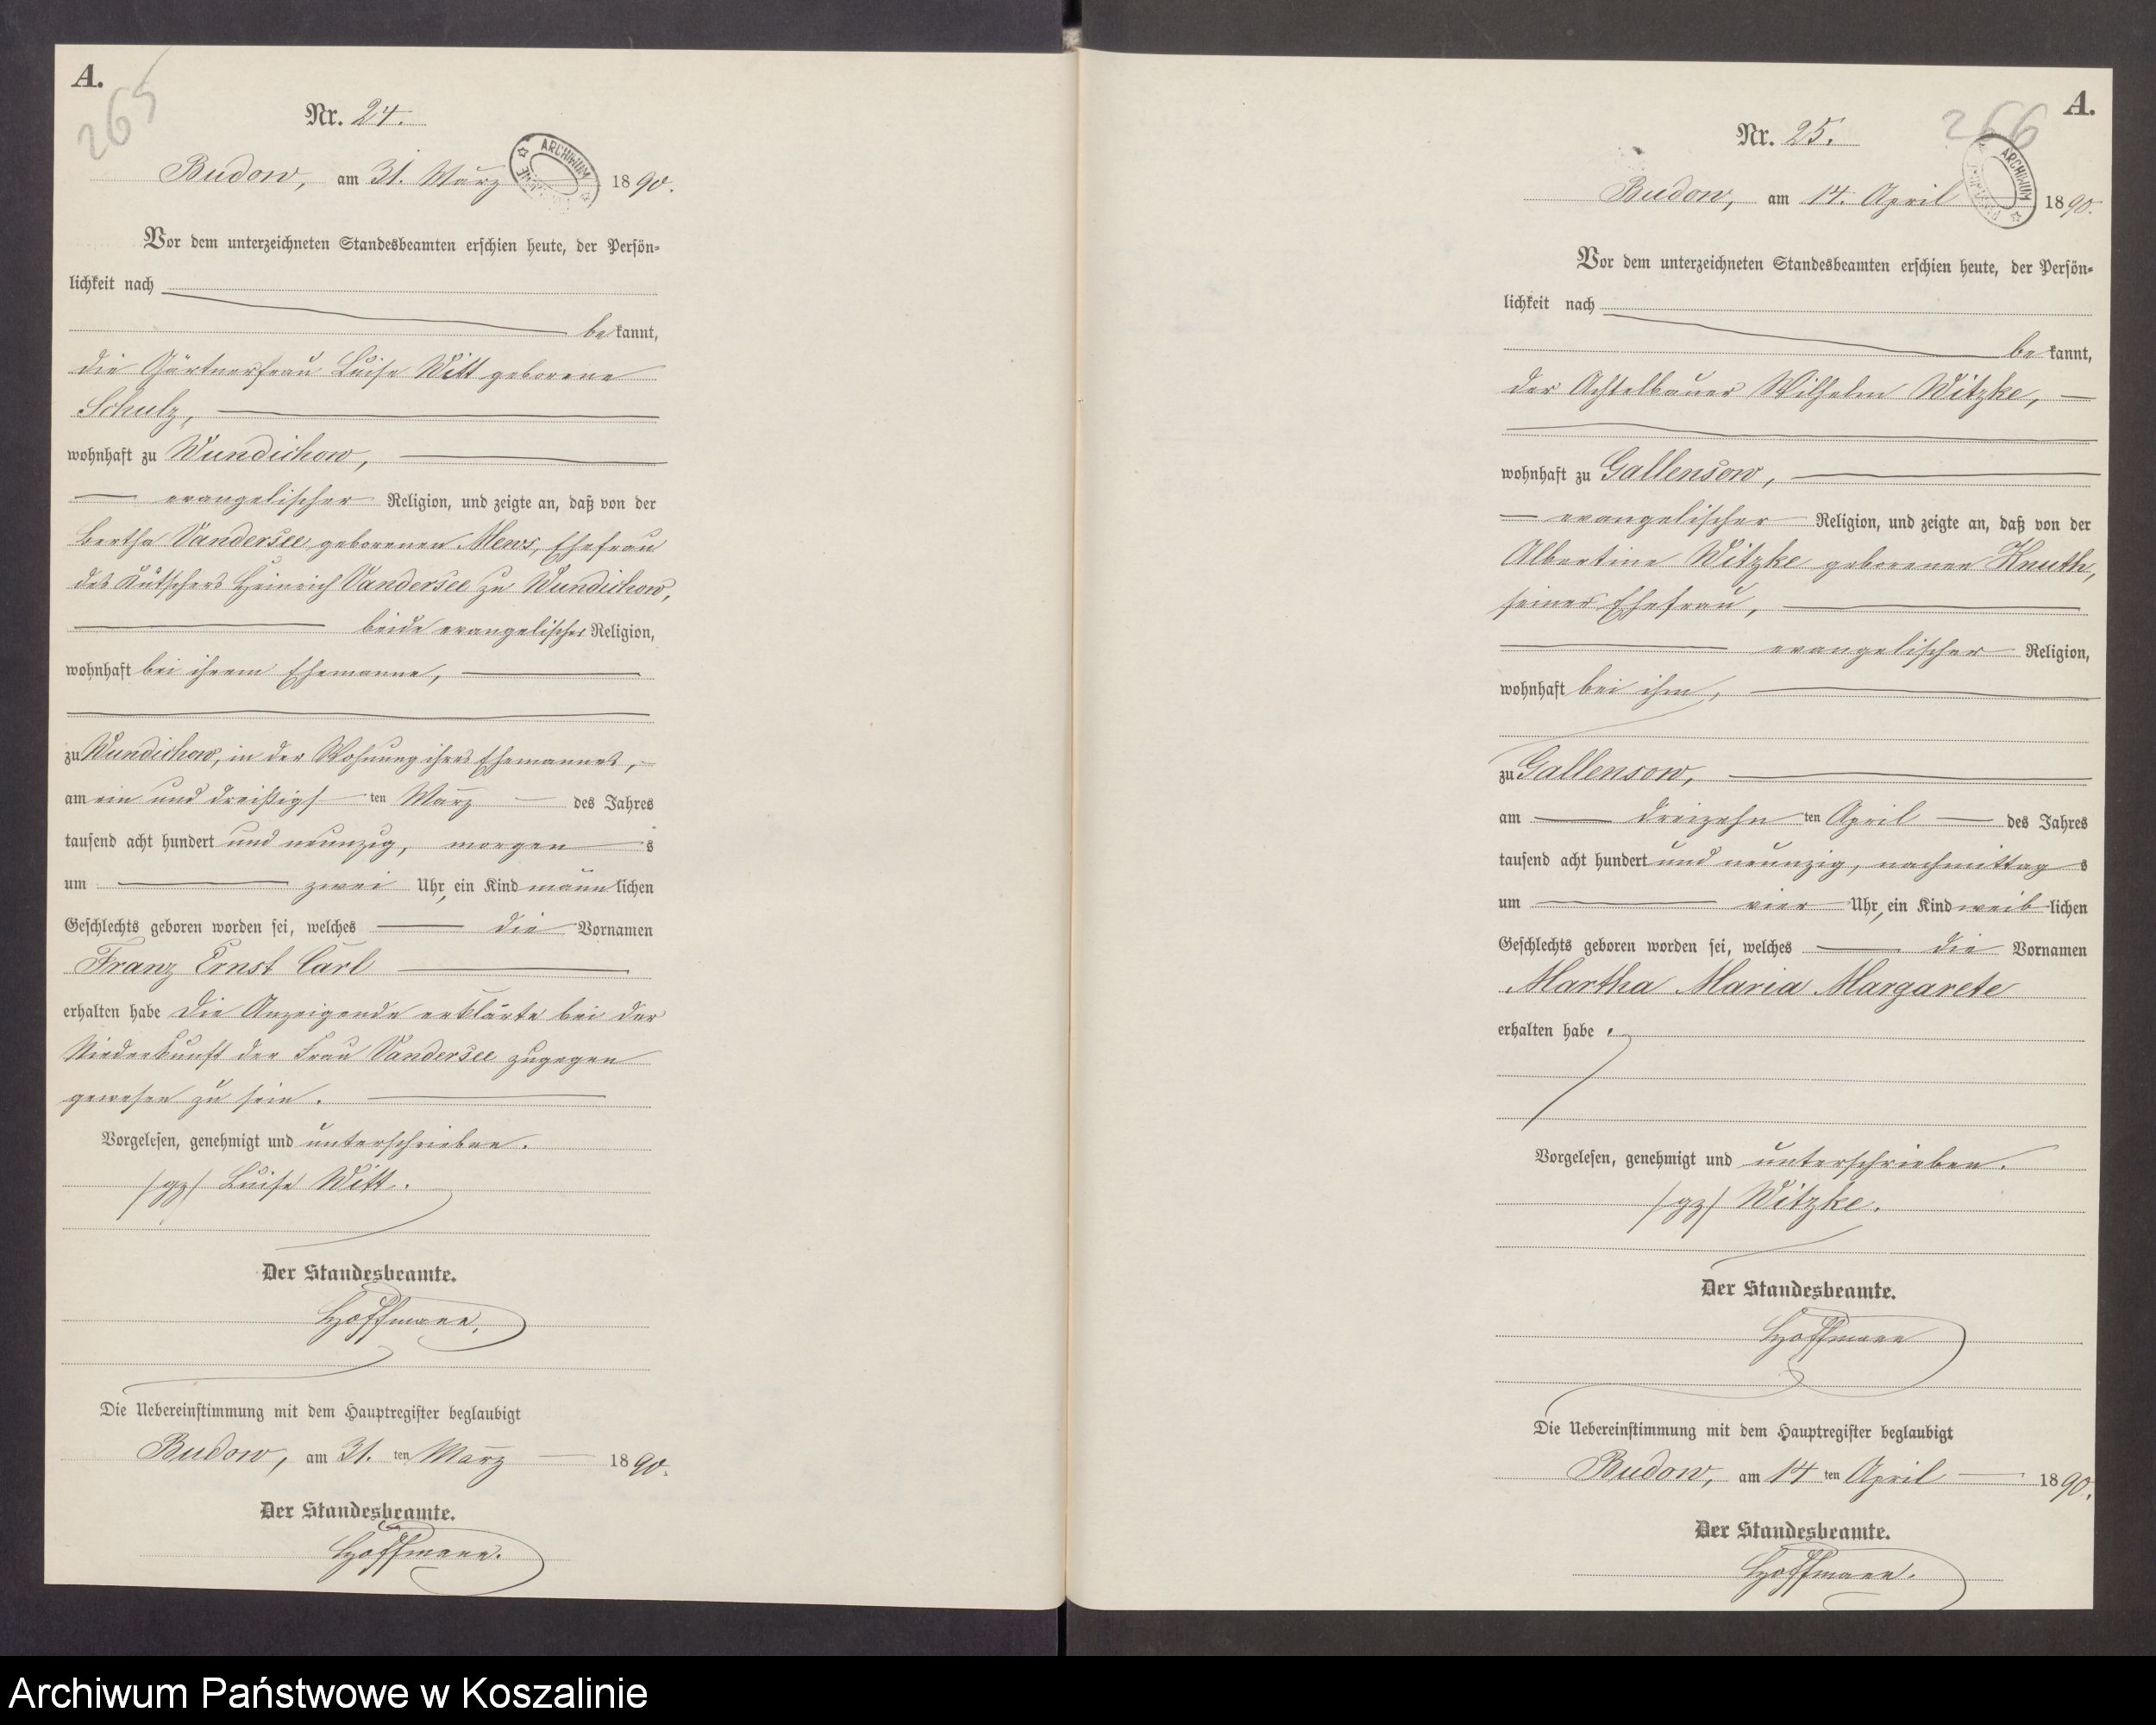 A.
265
Nr. 24.
Budow, am 31. März 1890.
ARCHIWUM
Vor dem unterzeichneten Standesbeamten erschien heute, der Persön-
lichkeit nach
bekannt,
die Gärtnerfrau Luise Witt geborene
Schulz,
wohnhaft zu Wundichow,
evangelischer Religion, und zeigte an, daß von der
Bertha Vandersee geborenen Mews, Ehefrau
des Kutschers Heinrich Vandersee zu Wundichow,
beide evangelischer Religion,
wohnhaft bei ihrem Ehemanne,
zu Wundichow, in der Wohnung ihres Ehemannes,
am ein und dreißigsten März des Jahres
tausend acht hundert und neunzig, morgens
um zwei Uhr, ein Kind männlichen
Geschlechts geboren worden sei, welches die Vornamen
Franz Ernst Carl
erhalten habe Die Anzeigende erklärte bei der
Niederkunft der Frau Vandersee zugegen
gewesen zu sein.
Vorgelesen, genehmigt und unterschrieben.
/gz/ Luise Witt.
Der Standesbeamte.
Hoffmann.
Die Uebereinstimmung mit dem Hauptregister beglaubigt
Budow, am 31. ten März 1890.
Der Standesbeamte.
Hoffmann.
A.
266
Nr. 25.
Budow, am 14. April 1890.
ARCHIWUM
Vor dem unterzeichneten Standesbeamten erschien heute, der Persön-
lichkeit nach
bekannt,
der Achtelbauer Wilhelm Witzke,
wohnhaft zu Gallensow,
evangelischer Religion, und zeigte an, daß von der
Albertine Witzke geborenen Knuth,
seiner Ehefrau,
evangelischer Religion,
wohnhaft bei ihm,
zu Gallensow,
am dreizehnten April des Jahres
tausend acht hundert und neunzig, nachmittags
um vier Uhr, ein Kind weiblichen
Geschlechts geboren worden sei, welches die Vornamen
Martha Maria Margarete
erhalten habe.
Vorgelesen, genehmigt und unterschrieben.
/gz/ Witzke.
Der Standesbeamte.
Hoffmann
Die Uebereinstimmung mit dem Hauptregister beglaubigt
Budow, am 14 ten April 1890.
Der Standesbeamte.
Hoffmann.
Archiwum Państwowe w Koszalinie